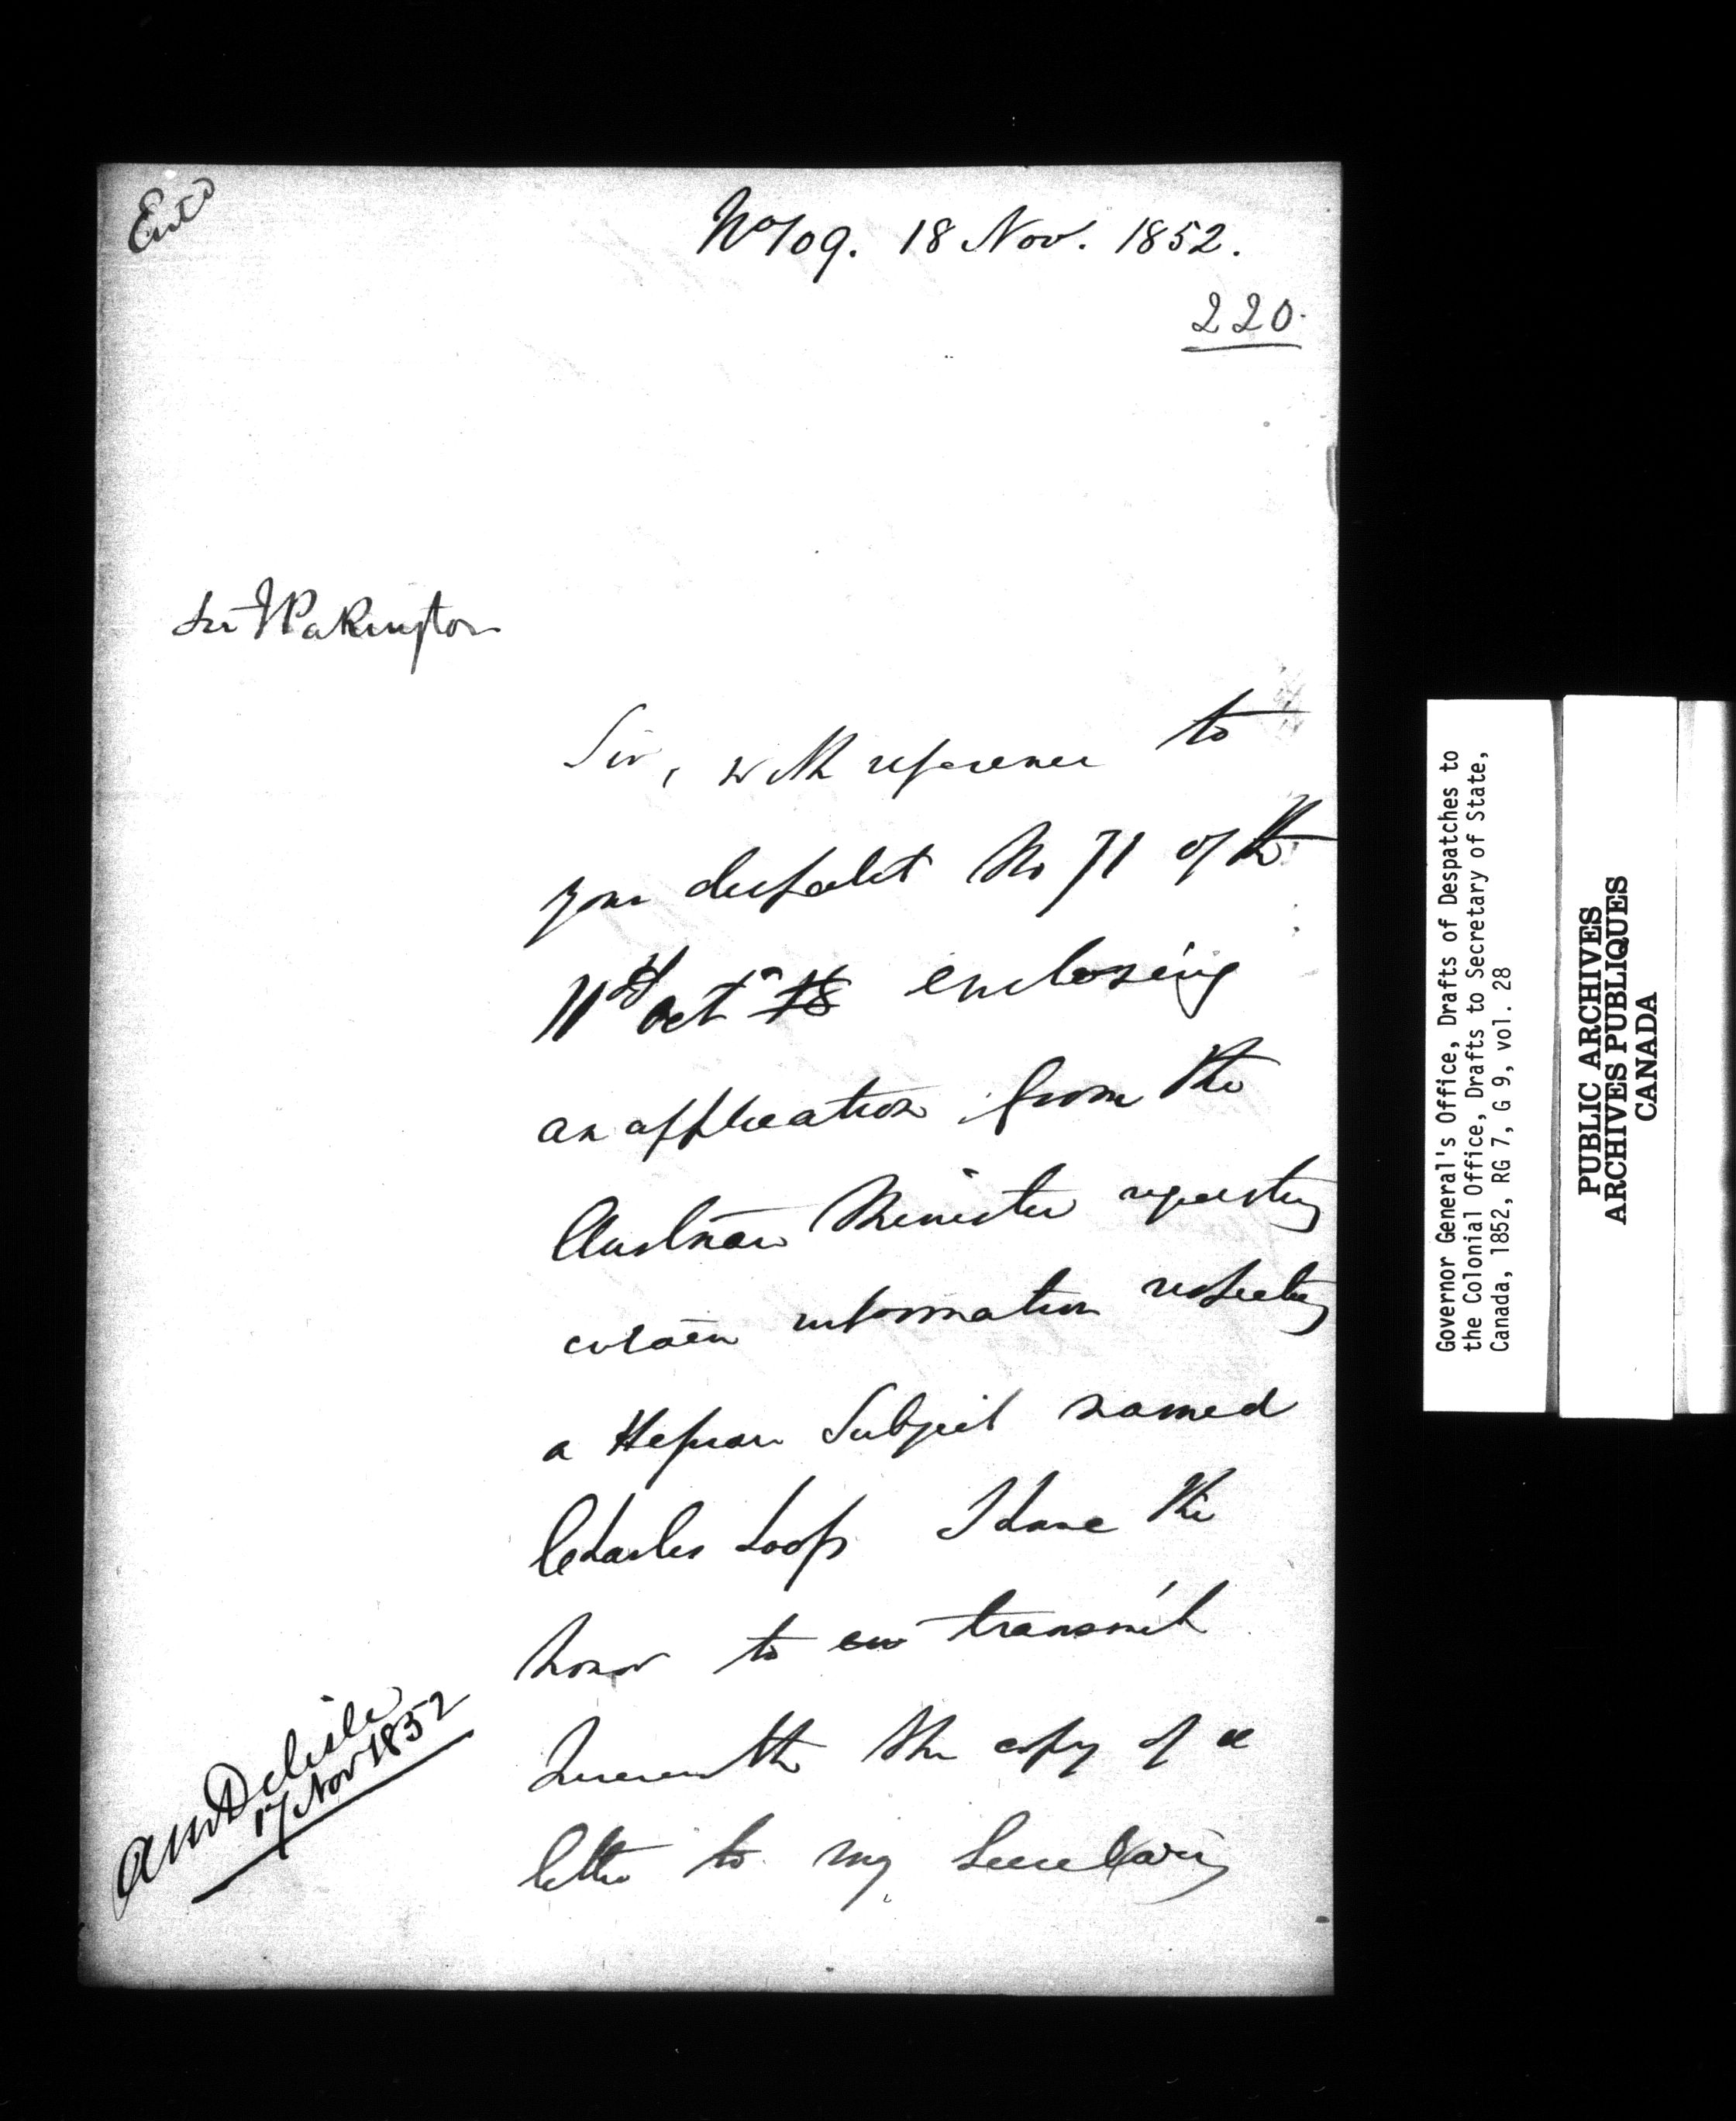 Entd
No 109. 18 Nov. 1852.
220.
Sir J Pakington
Sir, with reference to
your despatch No 71 of the
11th Octr enclosing
an application from the
Austrian Minister requesting
certain information respecting
a Hessian Subject named
Charles Loops I have the
honor to transmit
herewith the copy of a
letter to my Secretary
AM Delisle
17 Nov 1852
Governor General's Office, Drafts of Despatches to
the Colonial Office, Drafts to Secretary of State,
Canada, 1852, RG 7, G 9, vol. 28
PUBLIC ARCHIVES
ARCHIVES PUBLIQUES
CANADA